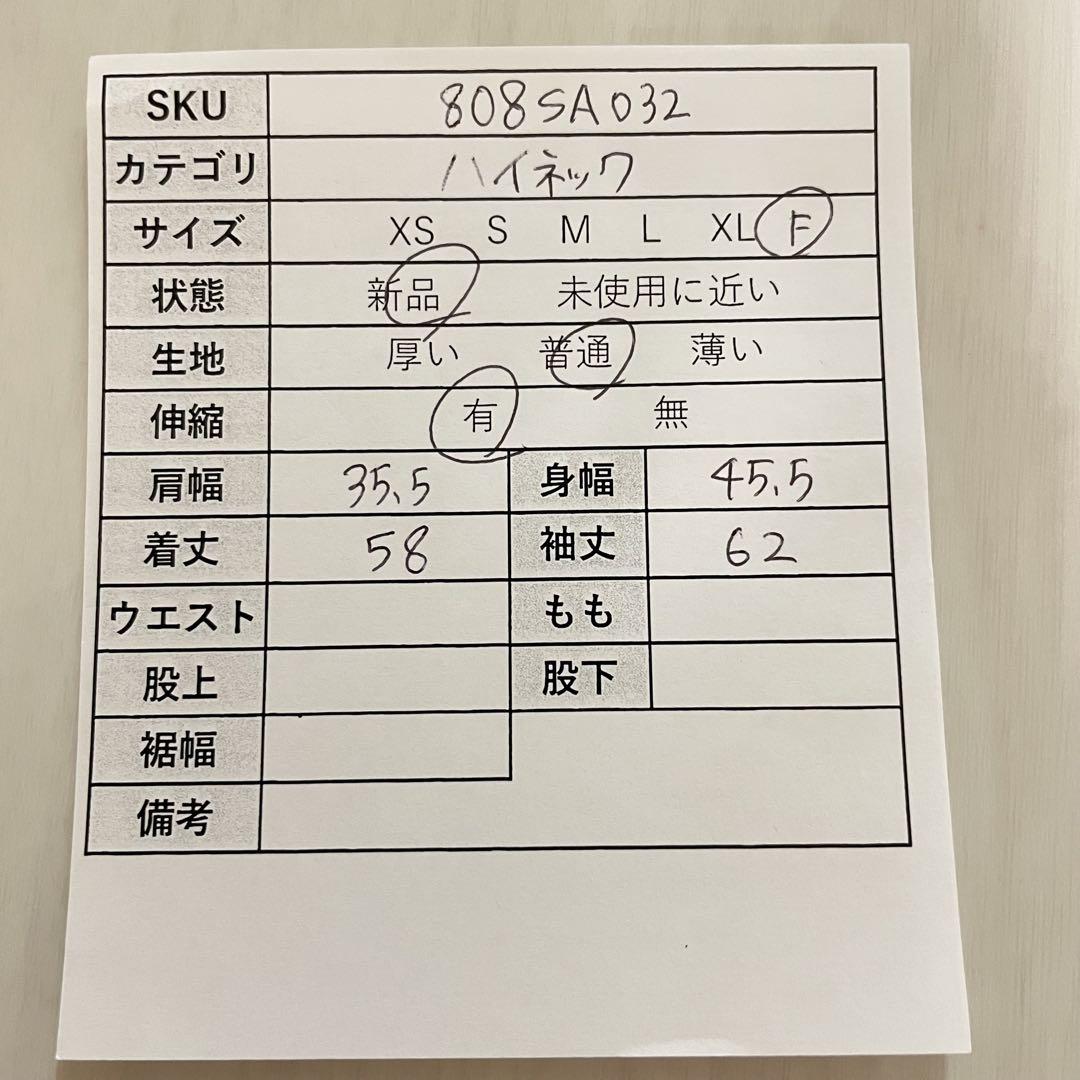 SKU 808SA032
カテゴリ ハイネック
サイズ XS S M L XL F
状態 新品 未使用に近い
生地 厚い 普通 薄い
伸縮 有 無
肩幅 35.5 身幅 45.5
着丈 58 袖丈 62
ウエスト もも
股上 股下
裾幅
備考